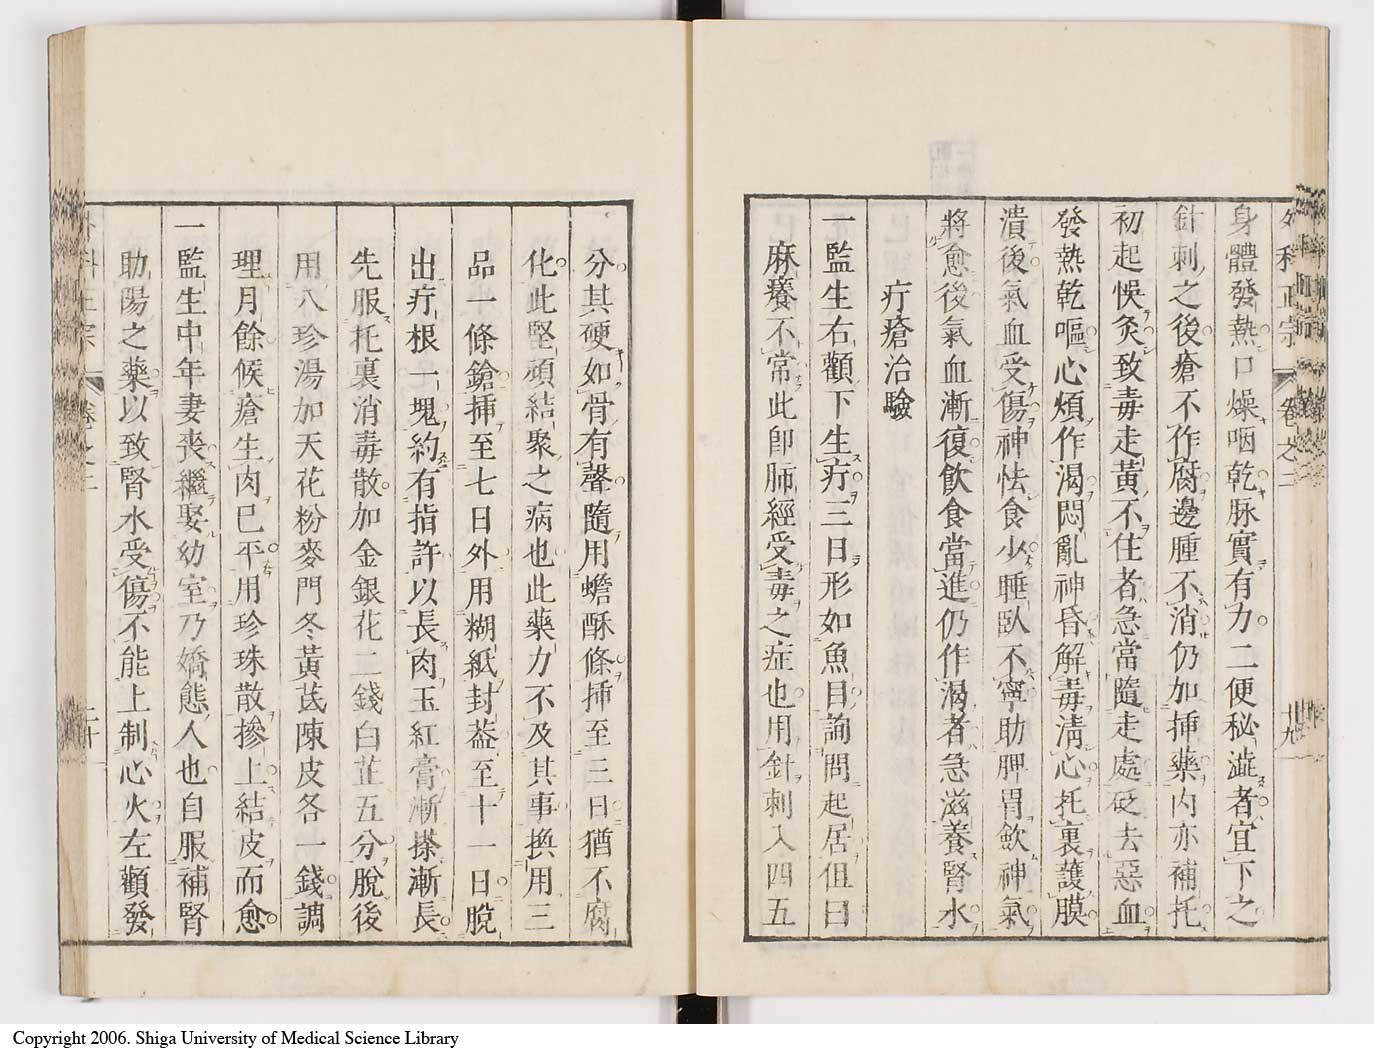 外科正宗 卷之二 廿九
身體發熱口燥咽乾脉實有力二便秘澁者宜下之
針刺之後瘡不作腐邊腫不消仍加揷藥内亦補托
初起悞灸致毒走黃不住者急當隨走處砭去惡血
發熱乾嘔心煩作渴悶亂神昏解毒淸心托裏護膜
潰後氣血受傷神怯食少睡臥不寧助脾胃歛神氣
將愈後氣血漸復飲食當進仍作渴者急滋養腎水
疔瘡治驗
一監生右顴下生疔三日形如魚目詢問起居但曰
麻癢不常此即肺經受毒之症也用針刺入四五
分其硬如骨有聲隨用蟾酥條揷至三日猶不腐
化此堅頑結聚之病也此藥力不及其事換用三
品一條鎗揷至七日外用糊紙封葢至十一日脫
出疔根一塊約有指許以長肉玉紅膏漸搽漸長
先服托裏消毒散加金銀花二錢白芷五分脫後
用八珍湯加天花粉麥門冬黃芪陳皮各一錢調
理月餘候瘡生肉已平用珍珠散摻上結皮而愈
一監生中年妻喪繼娶幼室乃嬌態人也自服補腎
助陽之藥以致腎水受傷不能上制心火左顴發
外科正宗 卷之二 三十
Copyright 2006. Shiga University of Medical Science Library